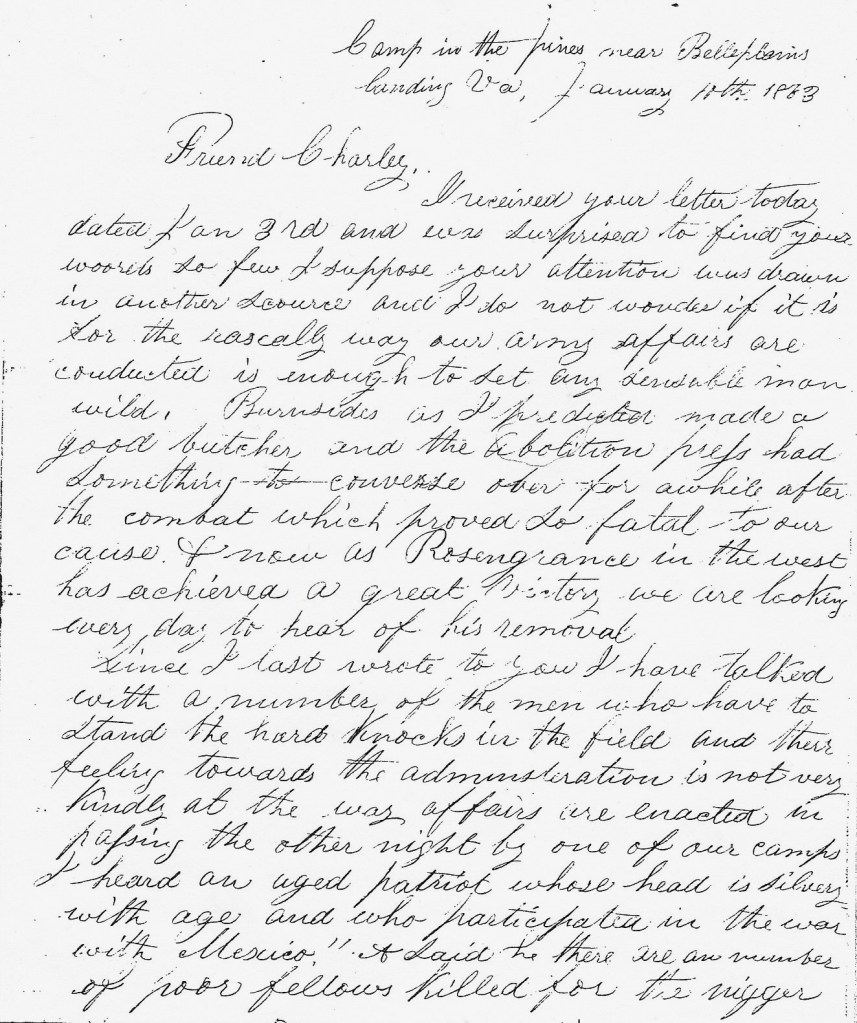 Camp in the pines near Belleplains
Landing Va, January 10th 1863
Friend Charley,
I received your letter today
dated Jan 3rd and was surprised to find your
woords so few I suppose your attention was drawn
in another scource and I do not wonder if it is
for the rascally way our army affairs are
conducted is enough to set any sensable man
wild. Burnsides as I predicted made a
good butcher and the abolition press had
something to converse over for awhile after
the combat which proved so fatal to our
cause. & now as Rosengrance in the west
has achieved a great Victory we are looking
every day to hear of his removal
Since I last wrote to you I have talked
with a number of the men who have to
stand the hard Knocks in the field and their
feeling towards the adminsteration is not very
Kindly at the way affairs are enacted in
passing the other night by one of our camps
I heard an aged patriot whose head is silvery
with age and who participated in the war
with Mexico." said he there are an number
of poor fellows Killed for the nigger